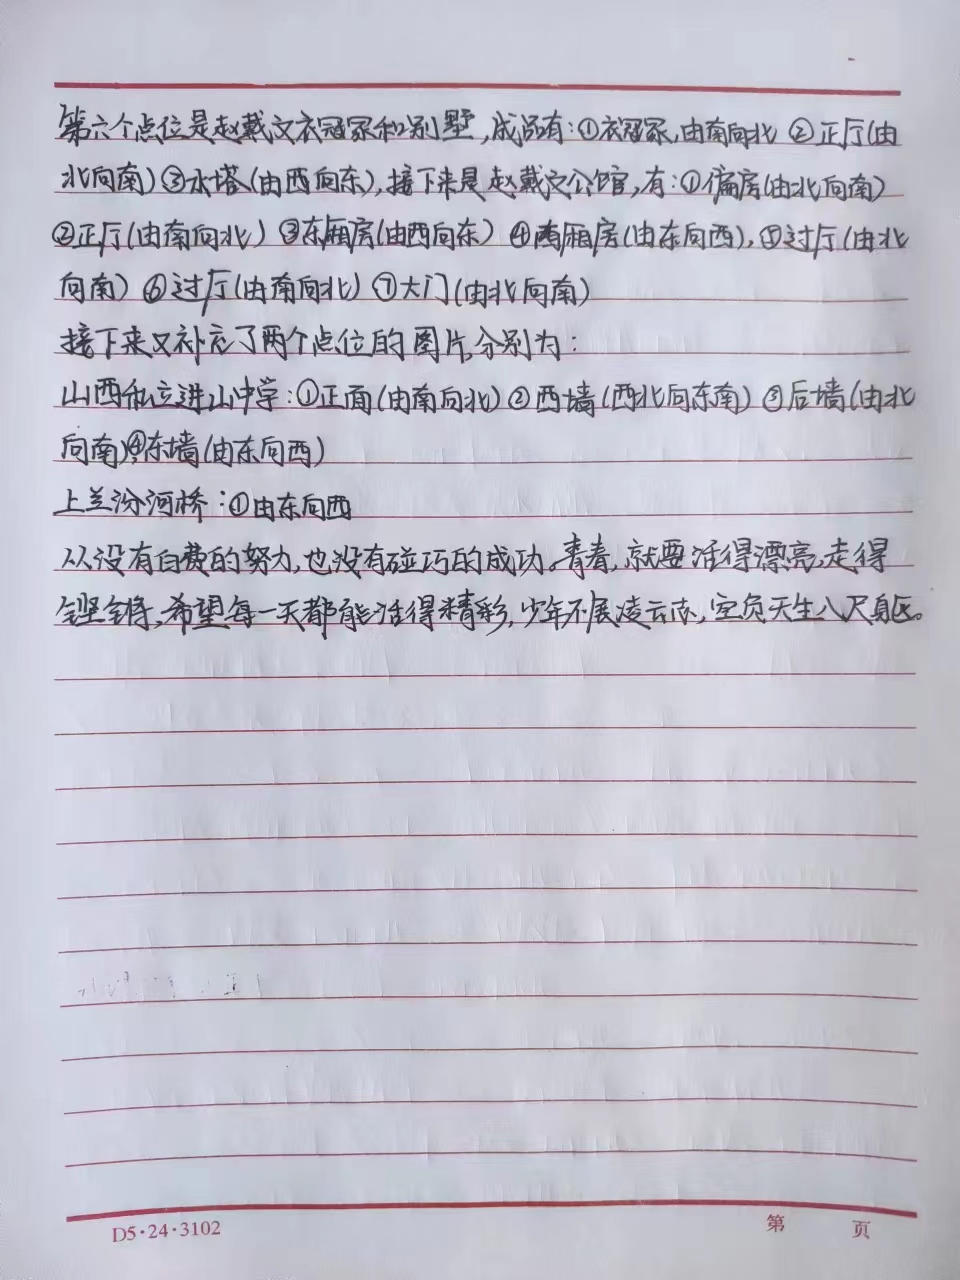 第六个点位是赵戴文衣冠冢和别墅,成品有:①衣冠冢,由南向北 ②正厅(由
北向南)③水塔(由西向东),接下来是赵戴文公馆,有:①偏房(由北向南)
②正厅(由南向北) ③东厢房(由西向东) ④西厢房(由东向西),⑤过厅(由北
向南) ⑥过厅(由南向北) ⑦大门(由北向南)
接下来又补充了两个点位的图片,分别为:
山西私立进山中学:①正面(由南向北)②西墙(西北向东南)③后墙(由北
向南)④东墙(由东向西)
上兰汾河桥:①由东向西
从没有白费的努力,也没有碰巧的成功。青春,就要活得漂亮,走得
铿锵,希望每一天都能活得精彩,少年不展凌云志,空负天生八尺身区。
D5·24·3102
第 页